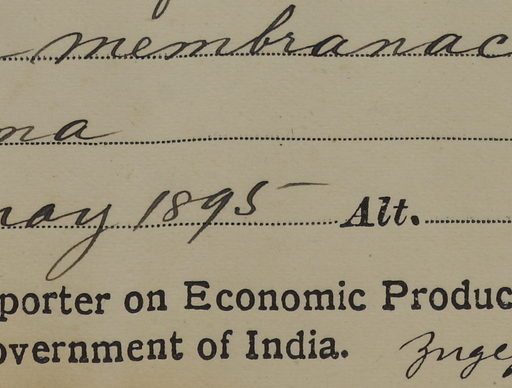 membranac
na
may 1895 Alt.
porter on Economic Produc
overnment of India.